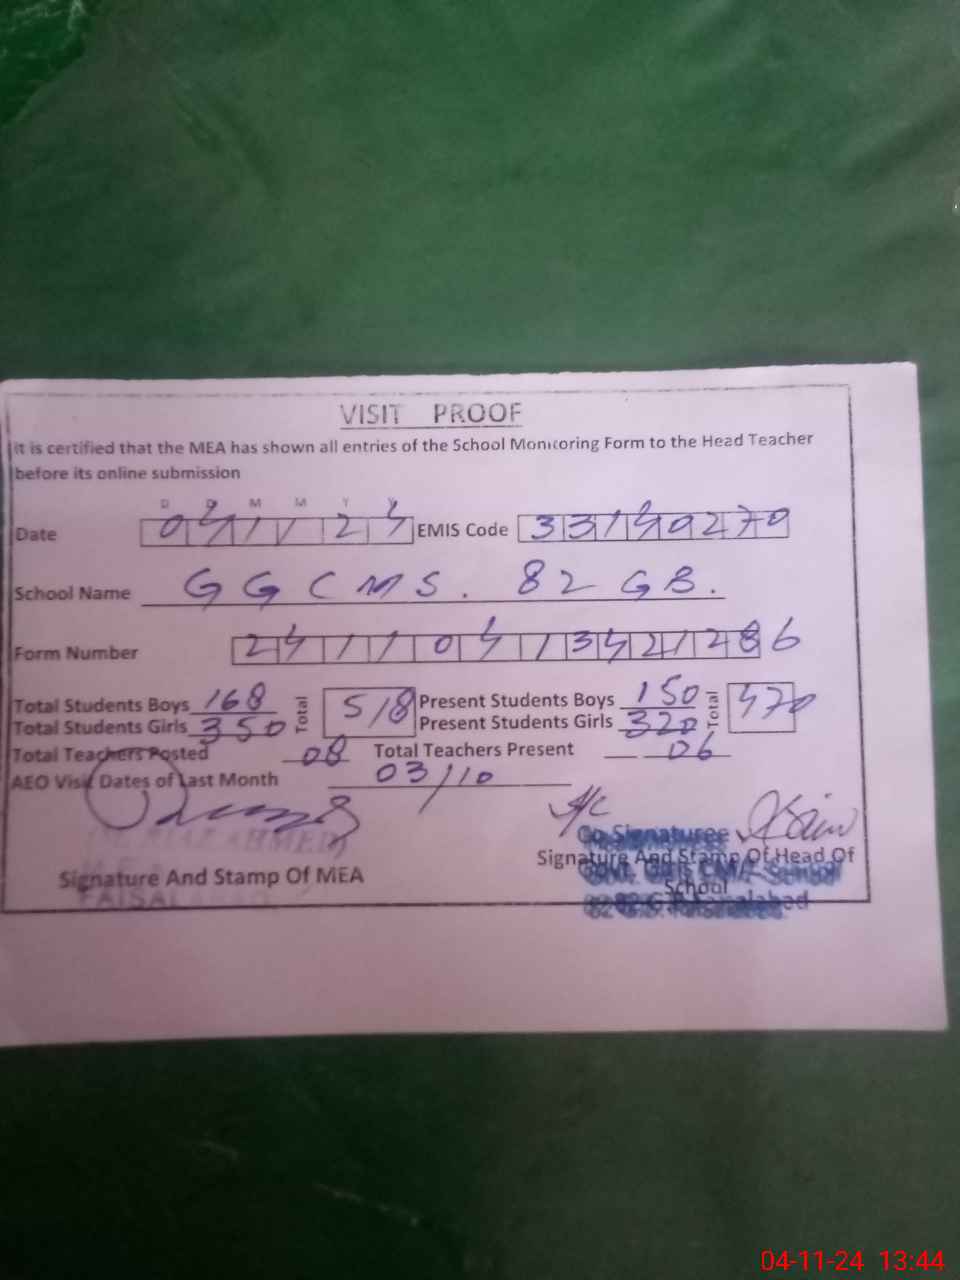 VISIT PROOF
It is certified that the MEA has shown all entries of the School Monitoring Form to the Head Teacher
before its online submission
D D M M Y Y
Date 041124 EMIS Code 33140270
School Name GGCMS. 82 GB.
Form Number 24110413421286
Total Students Boys 168 Total 518 Present Students Boys 150 Total 470
Total Students Girls 350 Present Students Girls 320
Total Teachers Posted 08 Total Teachers Present 06
AEO Visit Dates of Last Month 03/10
I/C
Co Signaturee
Signature And Stamp Of MEA
Signature And Stamp Of Head Of
School
Govt. Girls CM/E School
82 G.B. Faisalabad
AHMED
FAISAL
04-11-24 13:44